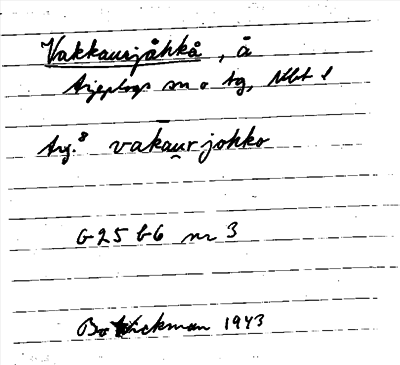 Vakkaurjåhkå, å
Arjeplogs sn o tg, Nbt l
Arj.8 vakau̯rjohko
G 25 b6 nr 3
Bo Wickman 1943